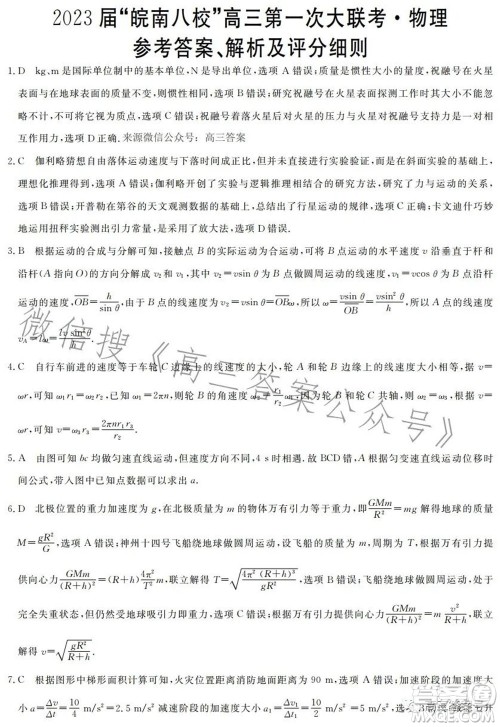 2023 届“皖南八校”高三第一次大联考·物理
参考答案、解析及评分细则
1. D kg、m 是国际单位制中的基本单位,N 是导出单位,选项 A 错误;质量是惯性大小的量度,祝融号在火星
表面与在地球表面的质量不变,则惯性相同,选项 B 错误;研究祝融号在火星表面探测工作时其大小不能忽
略不计,不可将它视为质点,选项 C 错误;祝融号着落火星后对火星的压力与火星对祝融号支持力是一对相
互作用力,选项 D 正确. 来源微信公众号:高三答案
2. C 伽利略猜想自由落体运动速度与下落时间成正比,但并未进行实验验证,而是在斜面实验的基础上,
理想化推理得到,选项 A 错误;伽利略开创了实验与逻辑推理相结合的研究方法,研究了力与运动的关系,
选项 B 错误;开普勒在第谷的天文观测数据的基础上,总结出了行星运动的规律,选项 C 正确;卡文迪什巧妙
地运用扭秤实验测出引力常量,是采用了放大法,选项 D 错误.
3. B 根据运动的合成与分解可知,接触点 B 的实际运动为合运动,可将 B 点运动的水平速度 v 沿垂直于杆和
沿杆(A 指向 O)的方向分解成 v₂ 和 v₁,其中 v₂=vsin θ 为 B 点做圆周运动的线速度,v₁=vcos θ 为 B 点沿杆
运动的速度,OB=h/sin θ,由于 B 点的线速度为 v₂=vsin θ=OBω,所以 ω=vsin θ/OB=vsin²θ/h,所以 A 点的线速度
v_A=lω=lvsin²θ/h.
4. C 自行车前进的速度等于车轮边缘上的线速度的大小,轮 A 和轮 B 边缘上的线速度大小相等,据 v=
ωr,可知 ω₁r₁=ω₂r₂,已知 ω₁=2πn,则轮 B 的角速度 ω₂=r₁/r₂ω₁,因为轮 B 和轮 C 共轴,则 ω₃=ω₂,根据 v=
ωr,可知 v=ω₃r₃=2πnr₁r₃/r₂.
5. A 由图可知 bc 均做匀速直线运动,但速度方向不同,4 s 时相遇.故 BCD 错,A 根据匀变速直线运动位移时
间公式,带入图中已知点数据可以求出 a.
6. D 北极位置的重力加速度为 g,在北极质量为 m 的物体万有引力等于重力,即GMm/R²=mg 解得地球的质量
M=gR²/G,选项 A 错误;神州十四号飞船绕地球做圆周运动,设飞船的质量为 m,周期为 T,根据万有引力提
供向心力GMm/(R+h)²=(R+h)4π²/T²m,联立解得 T=√(4π²(R+h)³/gR²),选项 B 错误;飞船绕地球做圆周运动,处于
完全失重状态,但仍然受地球吸引力即重力,选项 C 错误;根据万有引力提供向心力GMm/(R+h)²=m v²/(R+h),联立
解得 v=√(gR²/(R+h)).
7. C 根据图形中梯形面积计算可知,火灾位置距离消防地面距离为 90 m,选项 A 错误;加速阶段的加速度大
小 a=Δv/Δt=10/4 m/s²=2.5 m/s² 减速阶段的加速度大小 a₁=Δv₁/Δt₁=10/2 m/s²=5 m/s²,选
微信搜《高三答案公众号》
答案圈